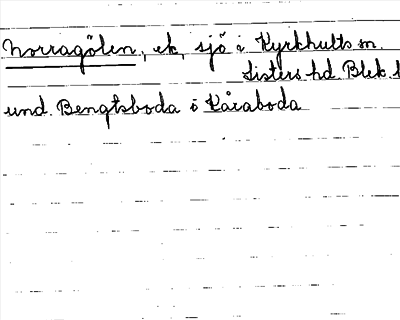 Norragölen, ek, sjö i Kyrkhults sn.
Listers hd. Blek. l
und. Bengtsboda i Kåraboda